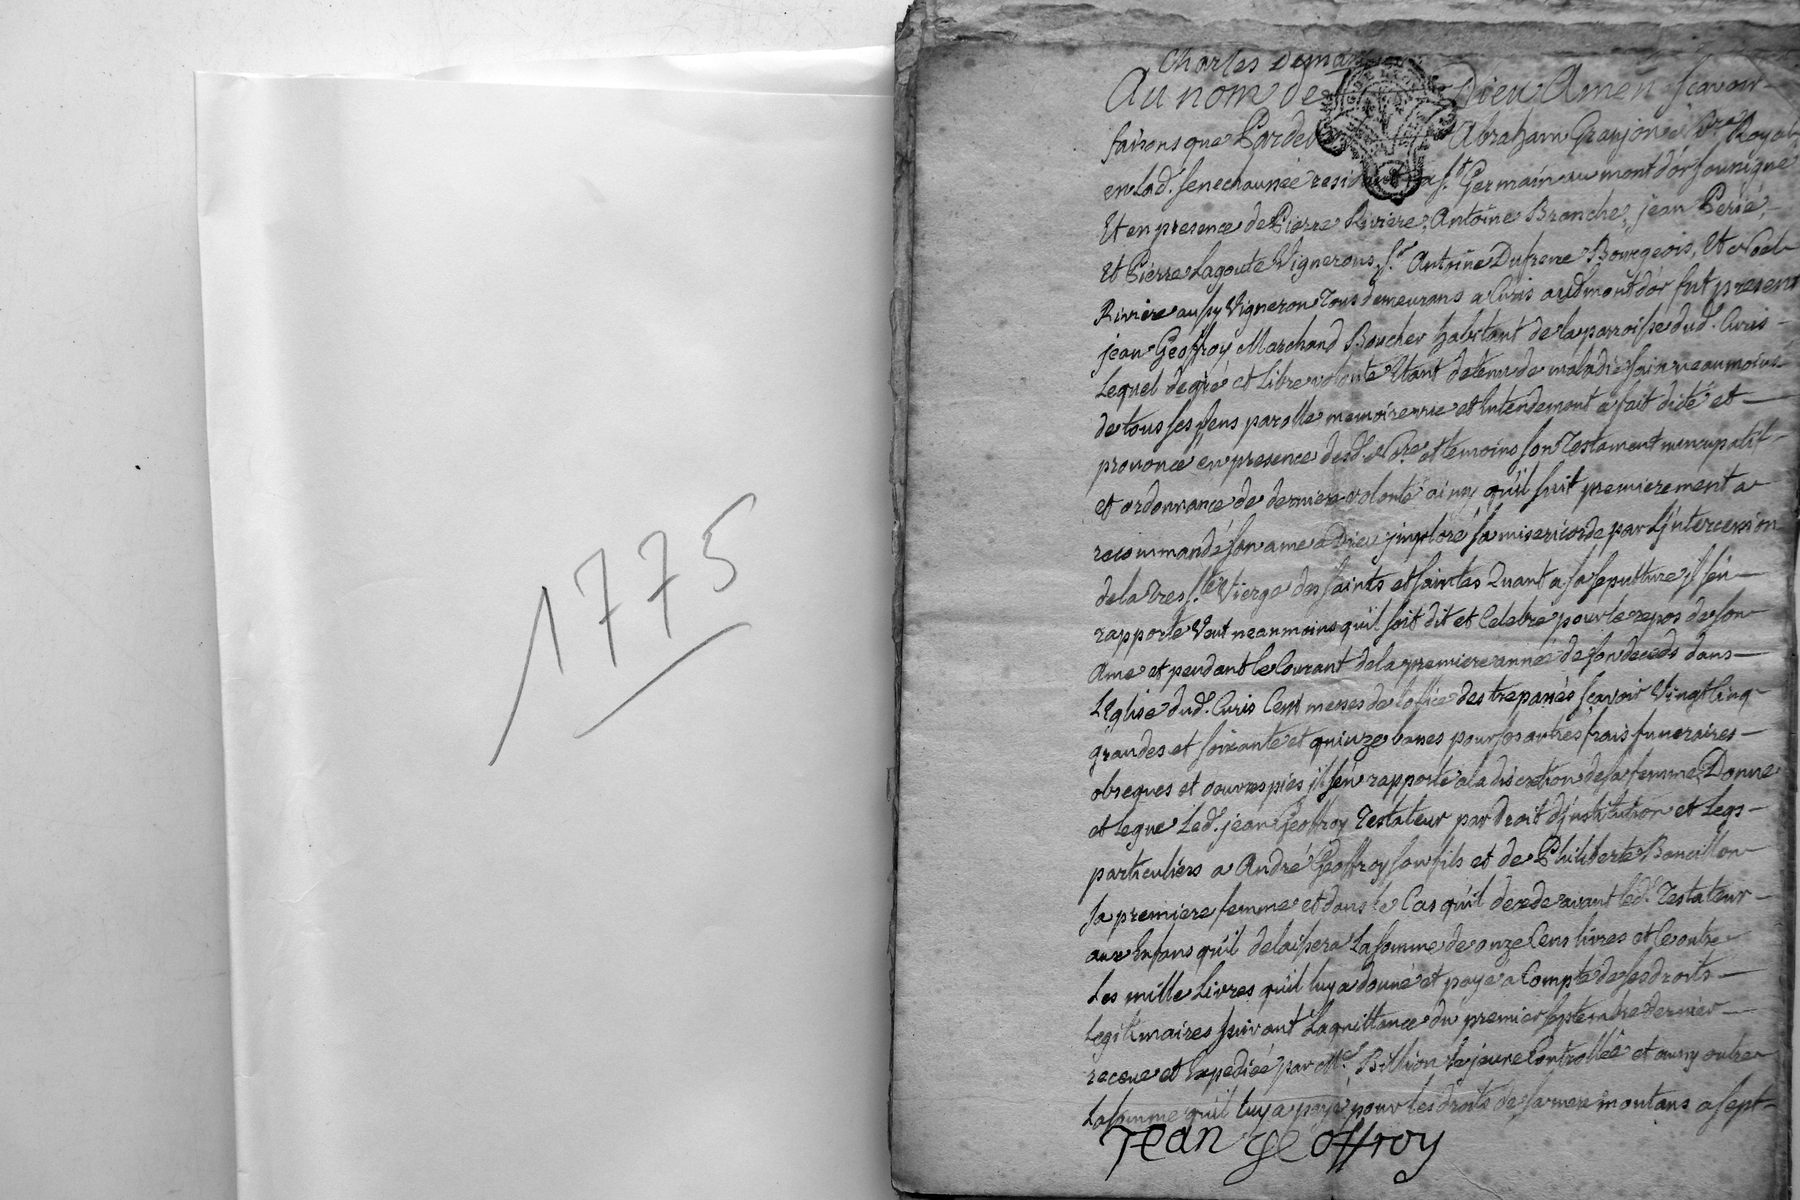 1775
Charles
Au nom de Dieu Amen Scavoir
faisons que Pardev Abraham Granjon Nre. Royal
en lad. senechaussée resid a St. Germain au mont d'or soussigné
Et en presence de Pierre Riviere, Antoine Branche, jean Perié,
et Pierre Lagoute Vignerons, Sr. Antoine Dufrene Bourgeois, Et Noel
Riviere aussy Vigneron Tous demeurans a Curis aud mont d'or fut present
jean Geoffroy Marchand Boucher habitant de la parroisse dud. Curis
Lequel de gré et Libre volonté Etant detenu de maladie sain neanmoins
de tous ses sens parolle memoire vue et Entendement a fait dicté et
prononcé en presence desd. Nre. et temoins son Testament nuncupatif
et ordonnance de derniere volonté ainsy qu'il suit premierement a
recommandé son ame a Dieu jmploré sa misericorde par L'jntercession
de la Tres Ste. Vierge des saints et saintes Quant a sa sepulture jl s'en
rapporte Veut neanmoins qu'il soit dit et Celebré pour le repos de son
Ame et pendant le Courant de la premiere année de son decedds dans
L'Eglise dud. Curis Cent messes de l'office des trepassés scavoir Vingt Cinq
grandes et soixante et quinze basses pour ses autres frais funeraires
obseques et oeuvres pies jl s'en rapporte a la discretion de sa femme, Donne
et legue Led. jean Geoffroy Testateur par droit d'jnstitution et Legs
particuliers a André Geoffroy son fils et de Philiberte
sa premiere femme et dans le Cas qu'il decede avant led. Testateur
aux Enfans qu'il delaissera La somme de onze Cens livres et Ce outre
Les mille Livres qu'il luy a donné et payé a Compte de ses droits
legitimaires suivant La quittance du premier septembre dernier
receue et Expediée par Me. Billion le jeune Controllée et aussy outre
La somme qu'il luy a payé pour les droits de sa mere montans a sept
Jean Geoffroy